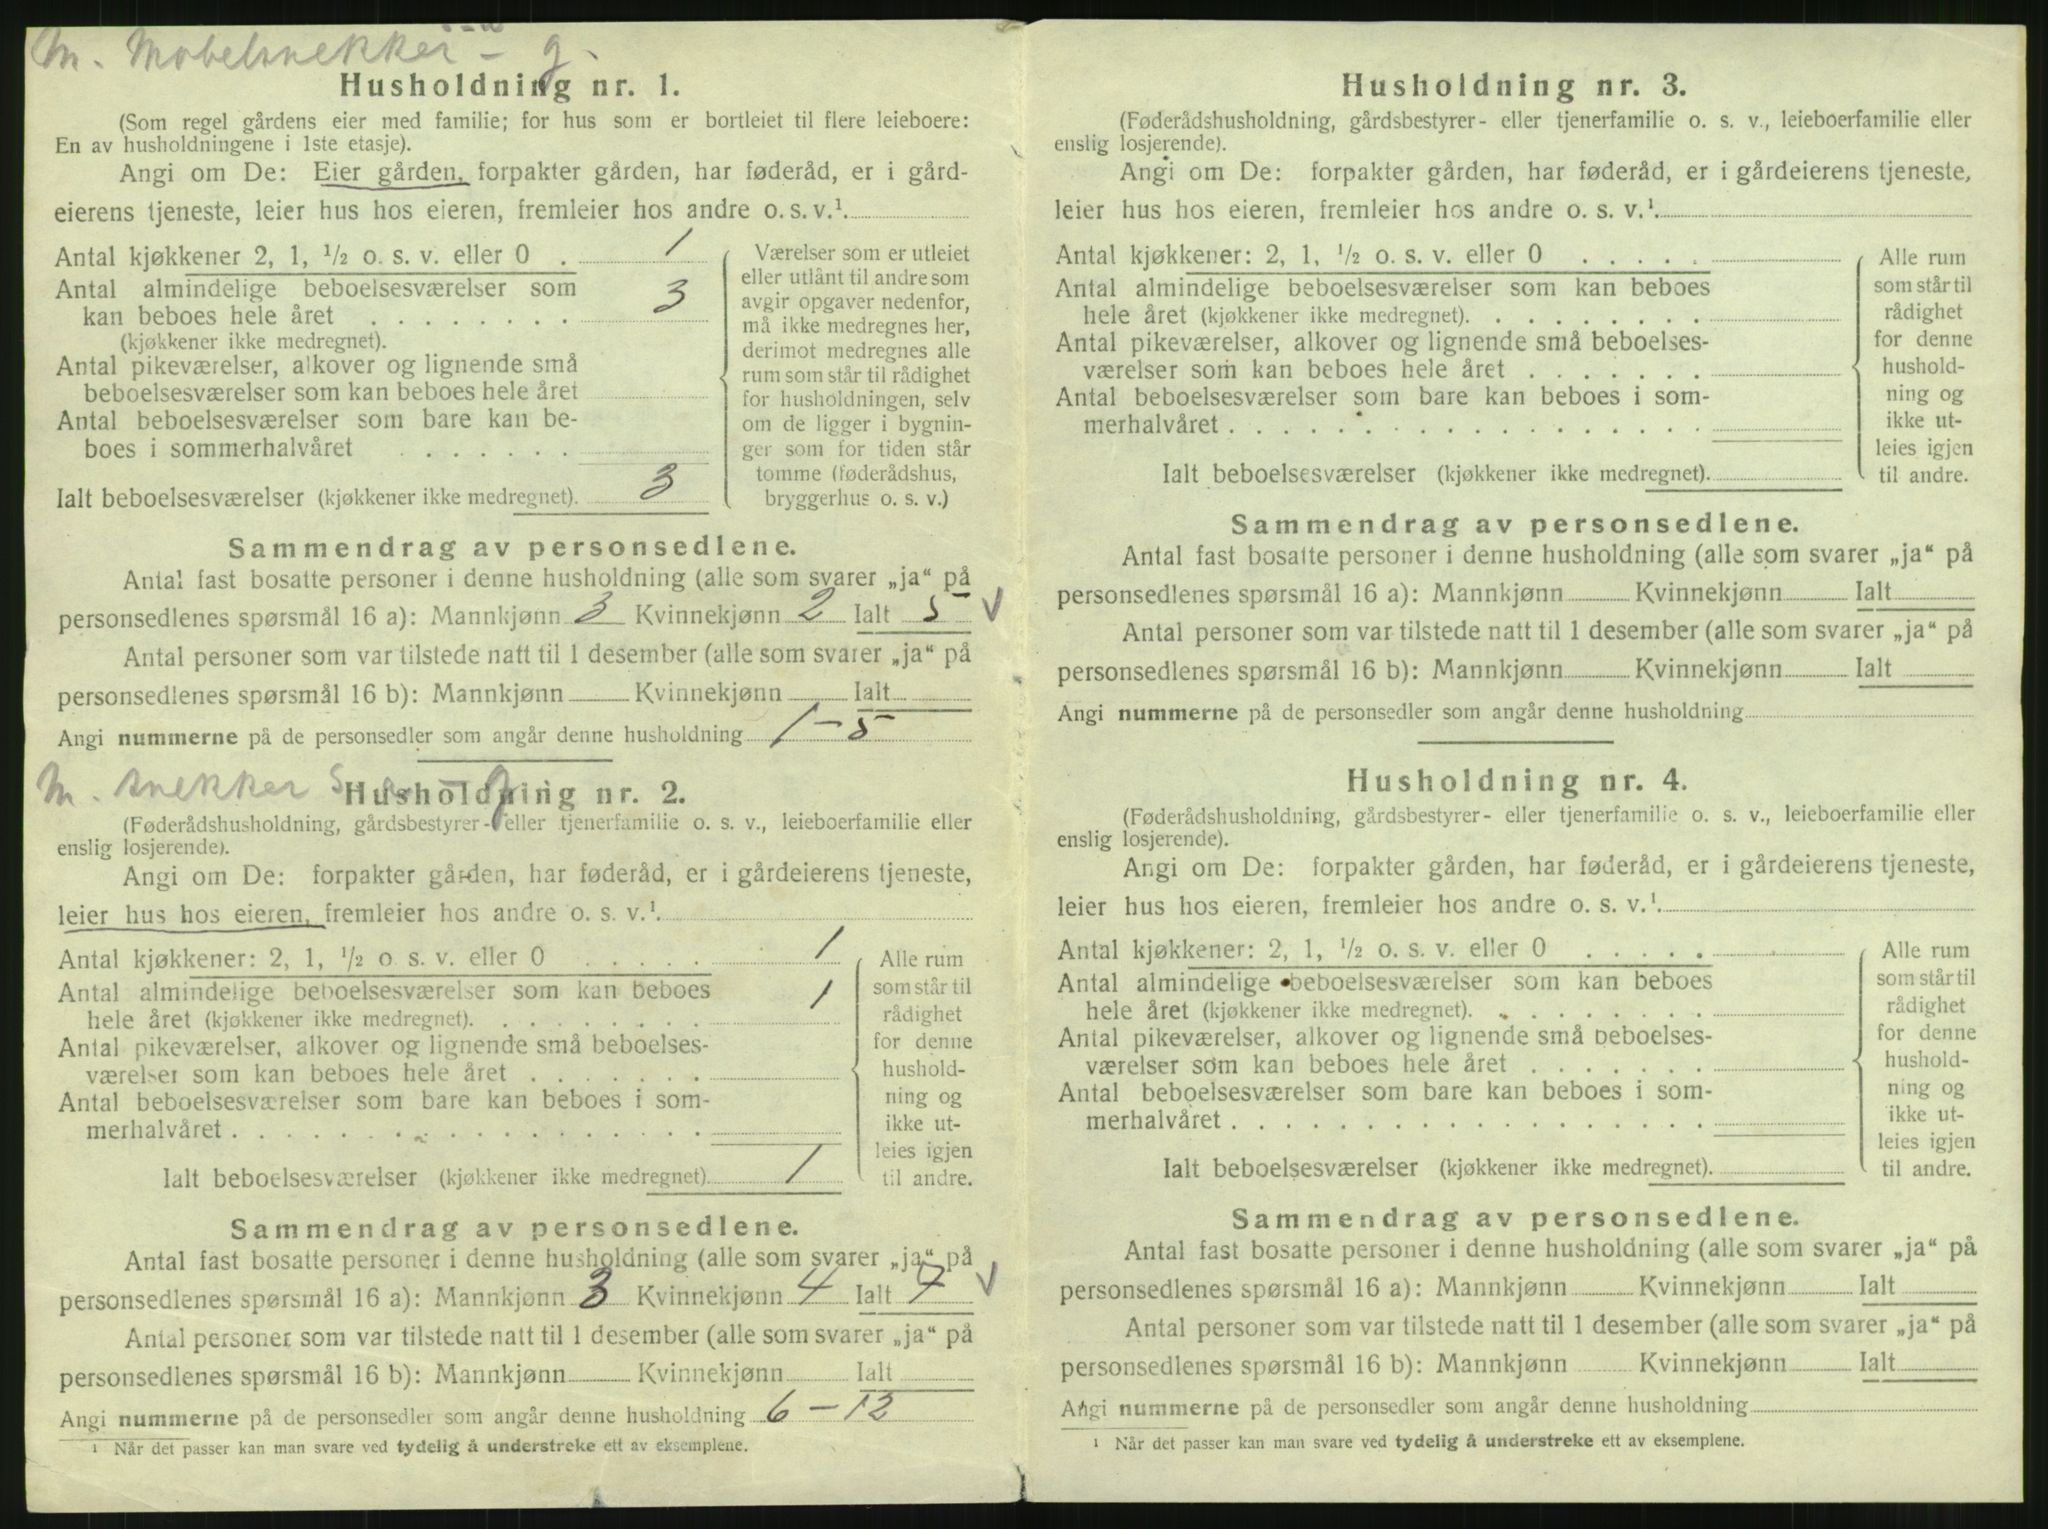 M. Møbelsnekker - g.
Husholdning nr. 1.
(Som regel gårdens eier med familie; for hus som er bortleiet til flere leieboere:
En av husholdningene i 1ste etasje).
Angi om De: Eier gården, forpakter gården, har føderåd, er i gård-
eierens tjeneste, leier hus hos eieren, fremleier hos andre o. s. v.¹
Antal kjøkkener 2, 1, ½ o. s. v. eller 0 . 1
Antal almindelige beboelsesværelser som
kan beboes hele året . . . . . . . . 3
(kjøkkener ikke medregnet).
Antal pikeværelser, alkover og lignende små
beboelsesværelser som kan beboes hele året
Antal beboelsesværelser som bare kan be-
boes i sommerhalvåret . . . . . .
Ialt beboelsesværelser (kjøkkener ikke medregnet). 3
Værelser som er utleiet
eller utlånt til andre som
avgir opgaver nedenfor,
må ikke medregnes her,
derimot medregnes alle
rum som står til rådighet
for husholdningen, selv
om de ligger i bygnin-
ger som for tiden står
tomme (føderådshus,
bryggerhus o. s. v.)
Sammendrag av personsedlene.
Antal fast bosatte personer i denne husholdning (alle som svarer „ja“ på
personsedlenes spørsmål 16 a): Mannkjønn 3 Kvinnekjønn 2 Ialt 5 ✓
Antal personer som var tilstede natt til 1 desember (alle som svarer „ja“ på
personsedlenes spørsmål 16 b): Mannkjønn Kvinnekjønn Ialt
Angi nummerne på de personsedler som angår denne husholdning 1-5
M. snekker g
Husholdning nr. 2.
(Føderådshusholdning, gårdsbestyrer- eller tjenerfamilie o. s. v., leieboerfamilie eller
enslig losjerende).
Angi om De: forpakter gården, har føderåd, er i gårdeierens tjeneste,
leier hus hos eieren, fremleier hos andre o. s. v.¹
Antal kjøkkener: 2, 1, ½ o s. v. eller 0 . . . . . 1
Antal almindelige beboelsesværelser som kan beboes
hele året (kjøkkener ikke medregnet). . . . . . . . . 1
Antal pikeværelser, alkover og lignende små beboelses-
værelser som kan beboes hele året . . . . . . .
Antal beboelsesværelser som bare kan beboes i som-
merhalvåret . . . . . . . . . . . . . . . . . .
Ialt beboelsesværelser (kjøkkener ikke medregnet). 1
Alle rum
som står til
rådighet
for denne
hushold-
ning og
ikke ut-
leies igjen
til andre.
Sammendrag av personsedlene.
Antal fast bosatte personer i denne husholdning (alle som svarer „ja“ på
personsedlenes spørsmål 16 a): Mannkjønn 3 Kvinnekjønn 4 Ialt 7 ✓
Antal personer som var tilstede natt til 1 desember (alle som svarer „ja“ på
personsedlenes spørsmål 16 b): Mannkjønn Kvinnekjønn Ialt
Angi nummerne på de personsedler som angår denne husholdning 6-12
¹ Når det passer kan man svare ved tydelig å understreke ett av eksemplene.
Husholdning nr. 3.
(Føderådshusholdning, gårdsbestyrer- eller tjenerfamilie o. s. v., leieboerfamilie eller
enslig losjerende).
Angi om De: forpakter gården, har føderåd, er i gårdeierens tjeneste,
leier hus hos eieren, fremleier hos andre o. s. v.¹
Antal kjøkkener: 2, 1, ½ o. s. v. eller 0 . . . . .
Antal almindelige beboelsesværelser som kan beboes
hele året (kjøkkener ikke medregnet). . . . . . . . .
Antal pikeværelser, alkover og lignende små beboelses-
værelser som kan beboes hele året . . . . . . .
Antal beboelsesværelser som bare kan beboes i som-
merhalvåret . . . . . . . . . . . . . . . . . .
Ialt beboelsesværelser (kjøkkener ikke medregnet).
Alle rum
som står til
rådighet
for denne
hushold-
ning og
ikke ut-
leies igjen
til andre.
Sammendrag av personsedlene.
Antal fast bosatte personer i denne husholdning (alle som svarer „ja“ på
personsedlenes spørsmål 16 a): Mannkjønn Kvinnekjønn Ialt
Antal personer som var tilstede natt til 1 desember (alle som svarer „ja“ på
personsedlenes spørsmål 16 b): Mannkjønn Kvinnekjønn Ialt
Angi nummerne på de personsedler som angår denne husholdning
Husholdning nr. 4.
(Føderådshusholdning, gårdsbestyrer- eller tjenerfamilie o. s. v., leieboerfamilie eller
enslig losjerende).
Angi om De: forpakter gården, har føderåd, er i gårdeierens tjeneste,
leier hus hos eieren, fremleier hos andre o. s. v.¹
Antal kjøkkener: 2, 1, ½ o. s. v. eller 0 . . . . .
Antal almindelige beboelsesværelser som kan beboes
hele året (kjøkkener ikke medregnet). . . . . . . . .
Antal pikeværelser, alkover og lignende små beboelses-
værelser som kan beboes hele året . . . . . . .
Antal beboelsesværelser som bare kan beboes i som-
merhalvåret . . . . . . . . . . . . . . . . . .
Ialt beboelsesværelser (kjøkkener ikke medregnet).
Alle rum
som står til
rådighet
for denne
hushold-
ning og
ikke ut-
leies igjen
til andre.
Sammendrag av personsedlene.
Antal fast bosatte personer i denne husholdning (alle som svarer „ja“ på
personsedlenes spørsmål 16 a): Mannkjønn Kvinnekjønn Ialt
Antal personer som var tilstede natt til 1 desember (alle som svarer „ja“ på
personsedlenes spørsmål 16 b): Mannkjønn Kvinnekjønn Ialt
Angi nummerne på de personsedler som angår denne husholdning
¹ Når det passer kan man svare ved tydelig å understreke ett av eksemplene.